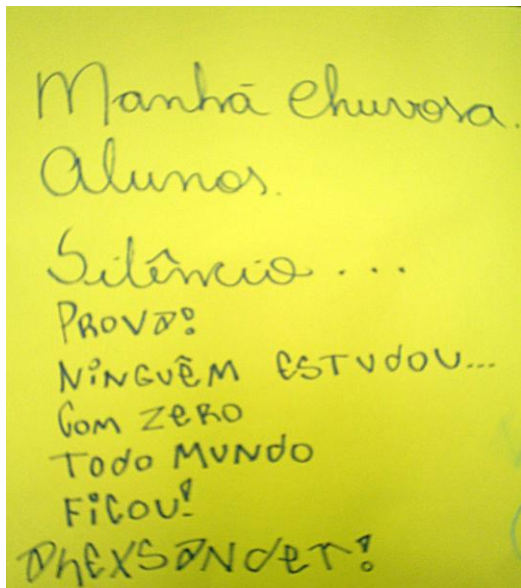 Manhã chuvosa.
Alunos.
Silêncio...
PROVA!
NiNGUÊM ESTUdOU...
COM ZERO
TOdO MUNdO
FiCOU!
AhEXSANdER!